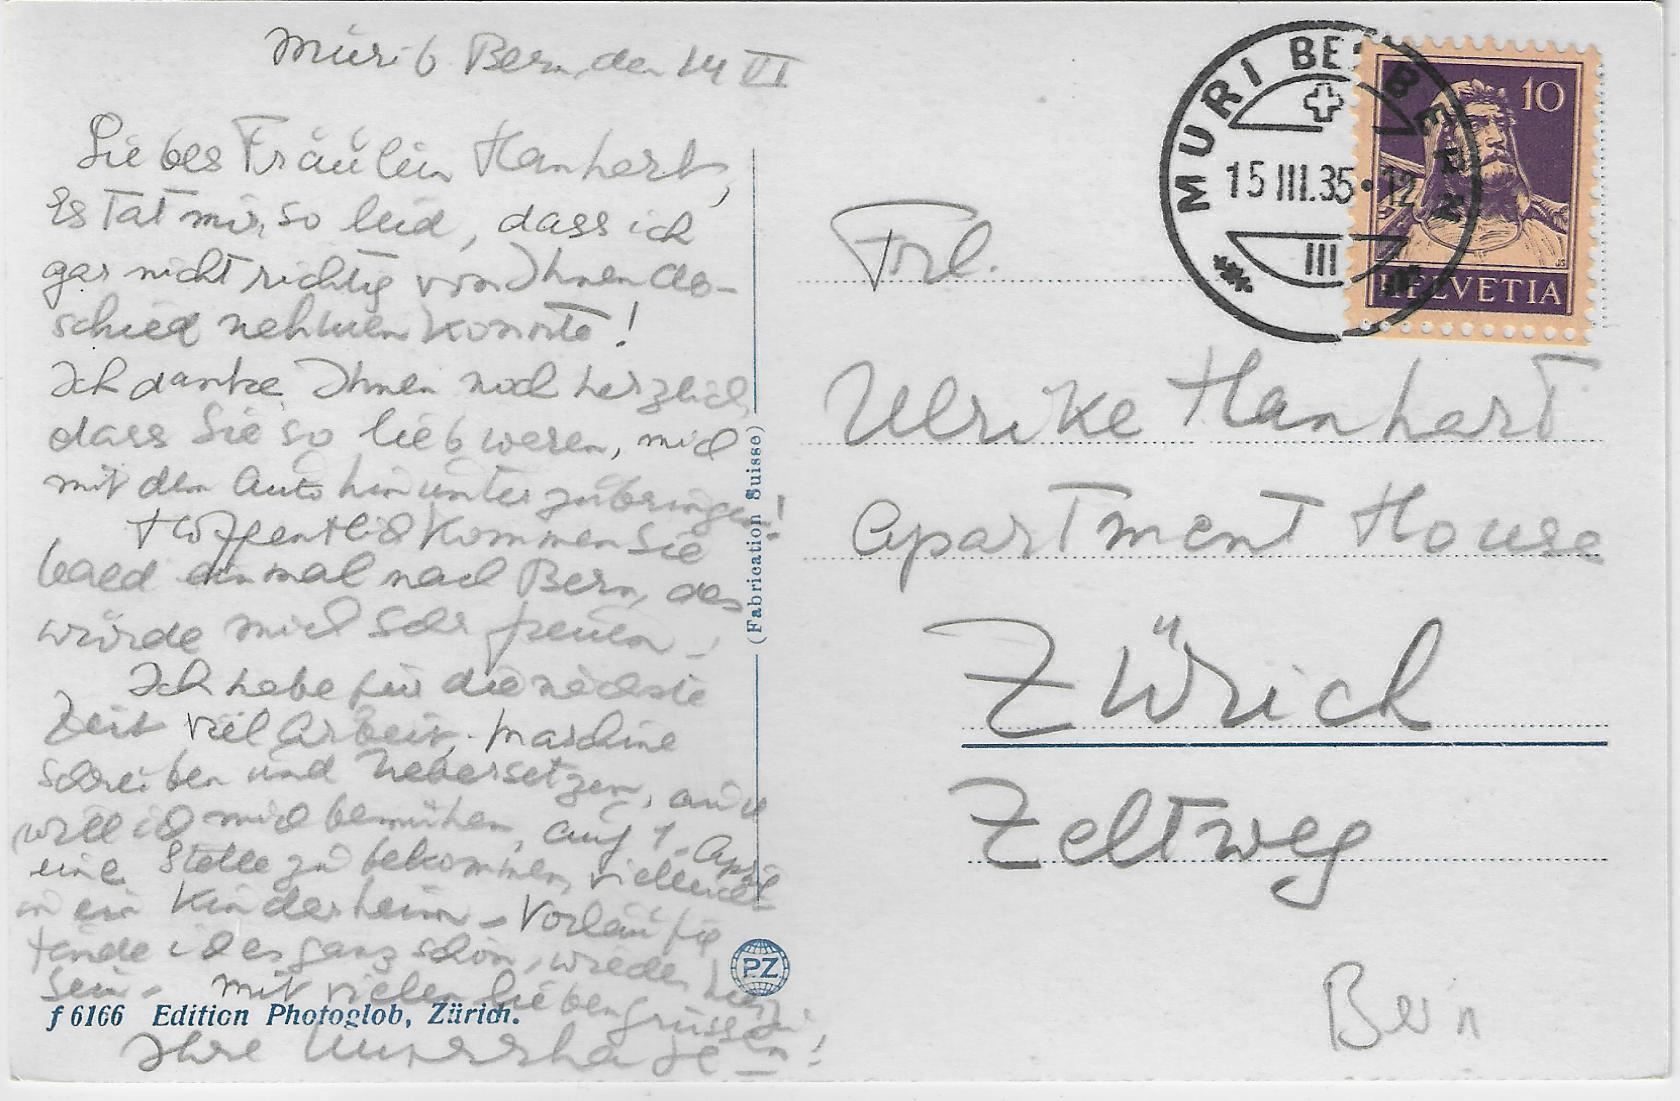 Muri b Bern, den 14 VI
Liebes Fräulein Hanhart,
Es tat mir so leid, dass ich
gar nicht richtig von Ihnen Ab-
schied nehmen konnte!
Ich danke Ihnen noch herzlich,
dass Sie so lieb waren, mich
mit dem Auto hinunter zu bringen!
Hoffentlich kommen Sie
bald einmal nach Bern, das
würde mich sehr freuen!
Ich habe für die nächste
Zeit viel Arbeit, Maschine
schreiben und Uebersetzen, auch
will ich mich bemühen, auf 1. April
eine Stelle zu bekommen, vielleicht
in ein Kinderheim – Vorläufig
finde ich es ganz schön, wieder hier zu
sein – Mit vielen lieben Grüssen
Ihre
f 6166 Edition Photoglob, Zürich.
(Fabrication Suisse)
PZ
MURI BEI BERN
15 III. 35 • 12
III
10
HELVETIA
Frl.
Ulrike Hanhart
Apartment House
Zürich
Zeltweg
Bern